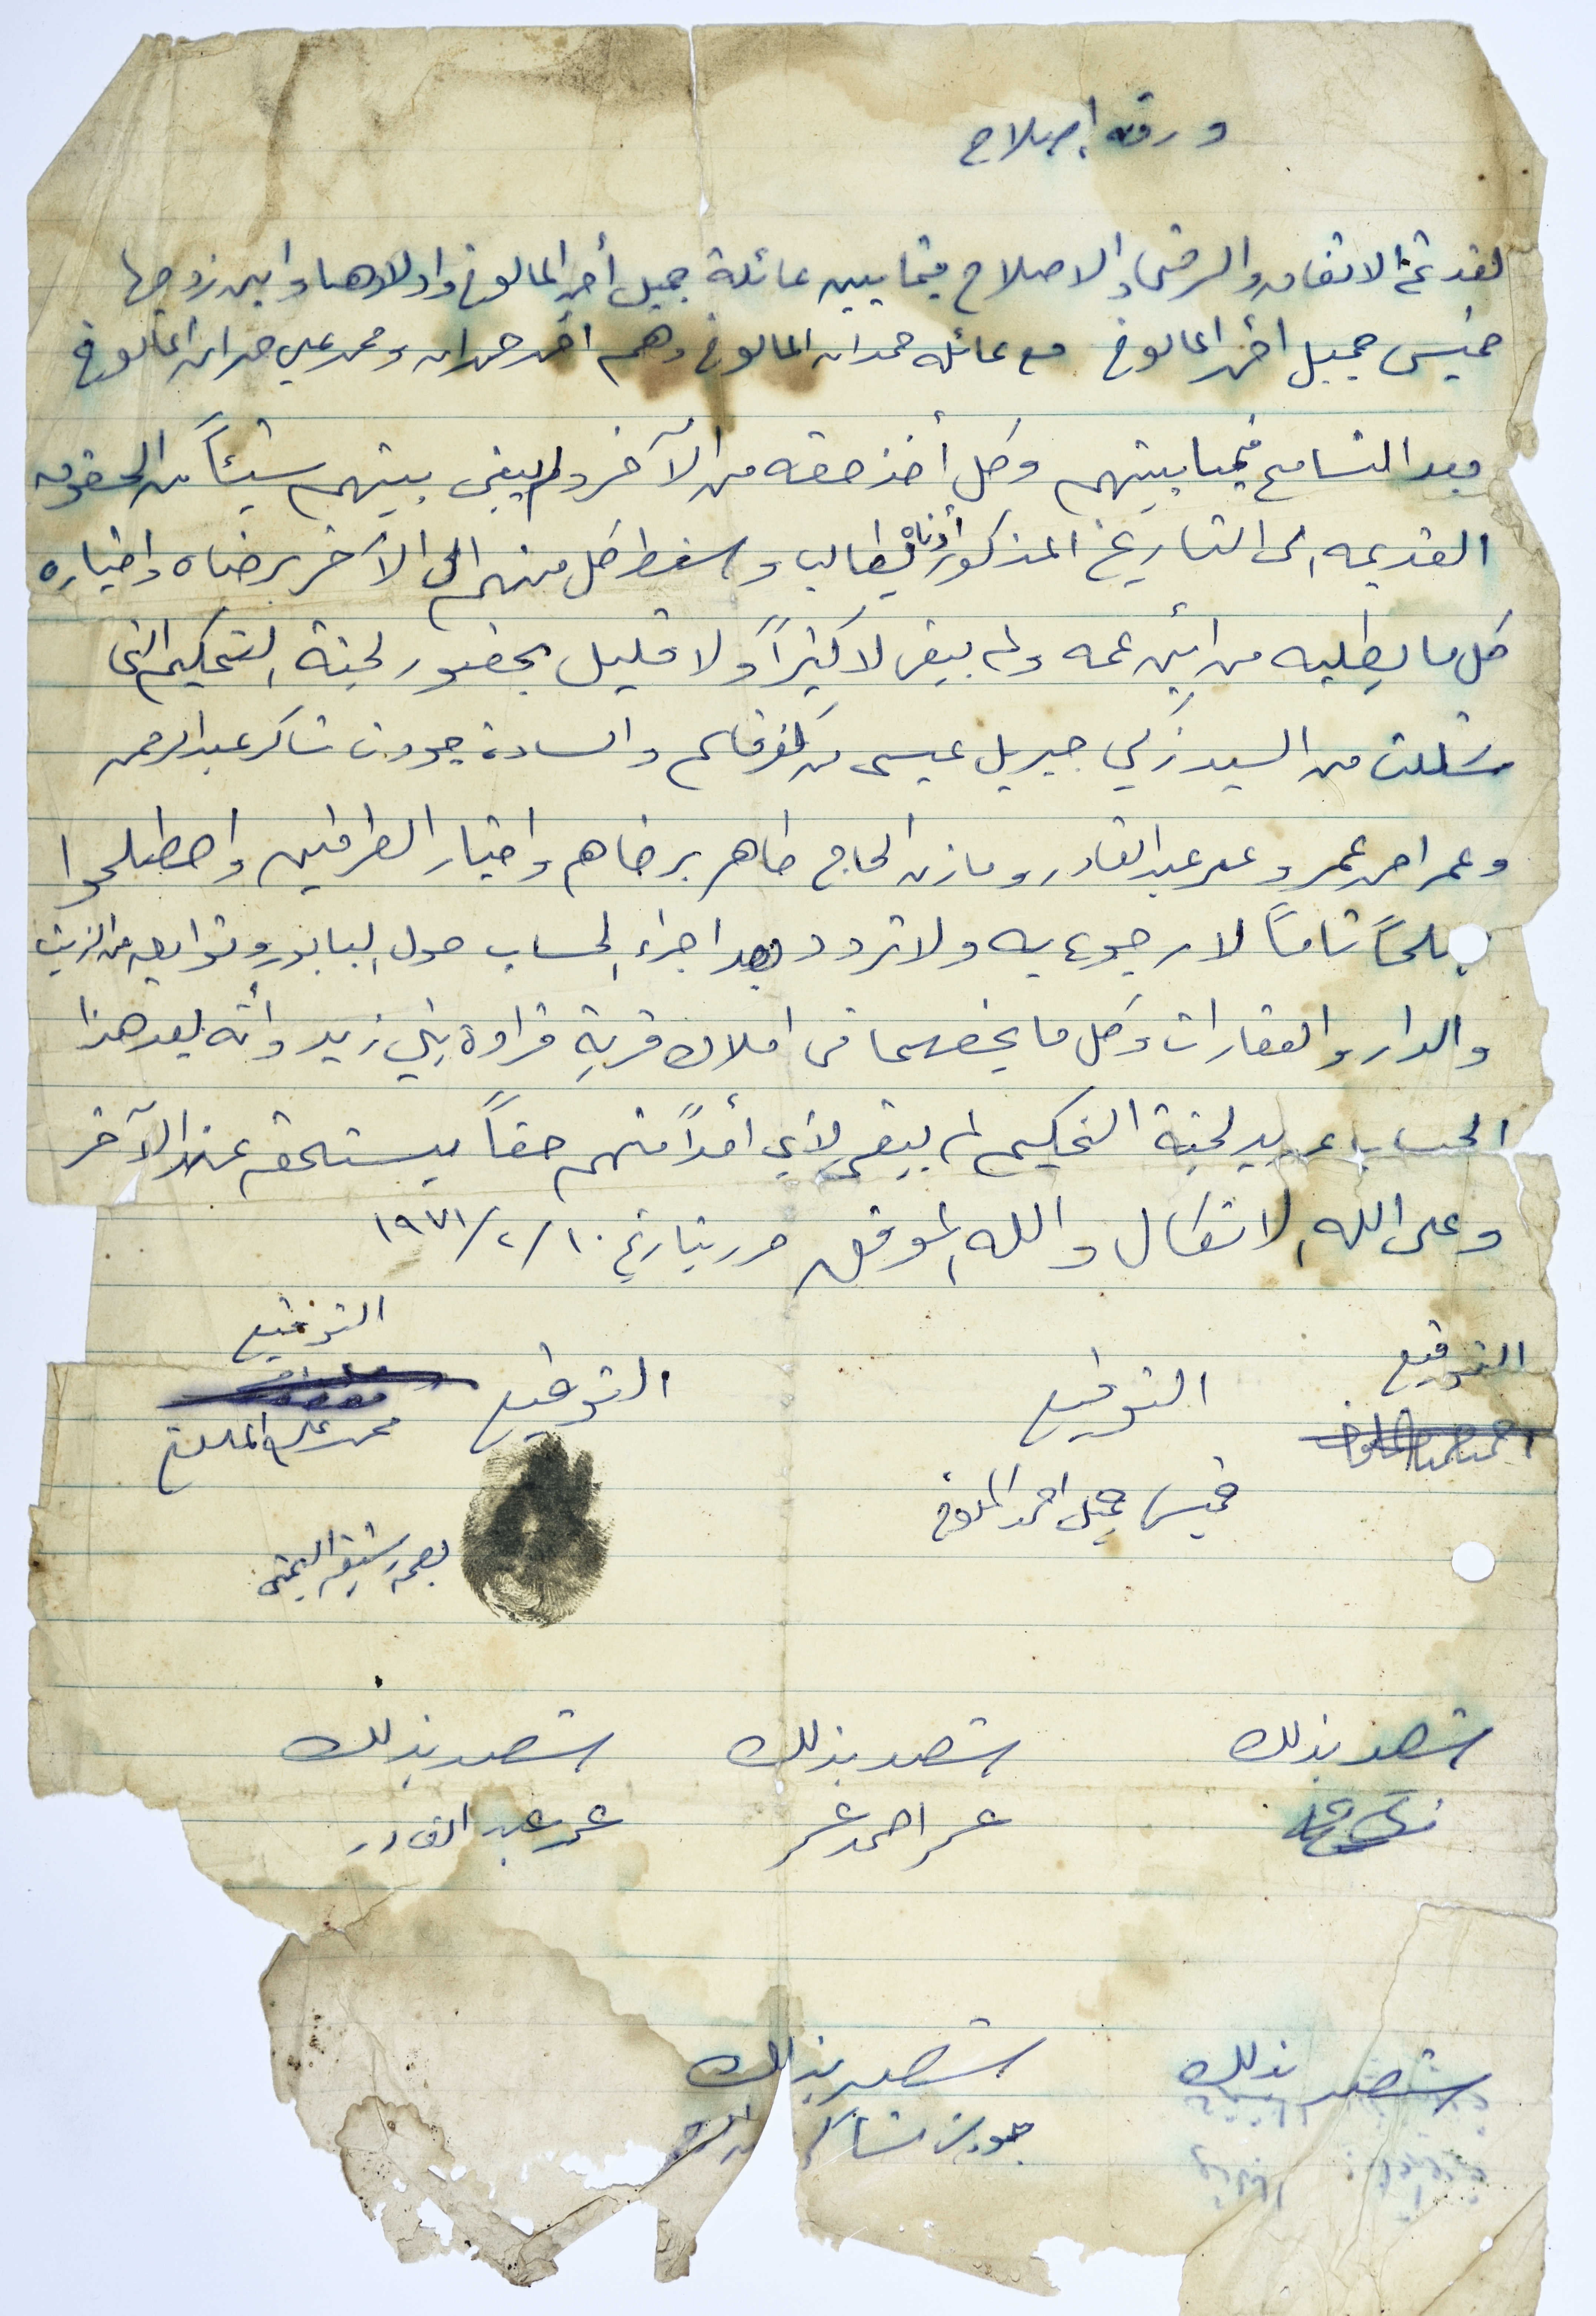 ورقة إصلاح
لقد تم الاتفاق والرضى والاصلاح فيما بين عائلة جميل أحمد المالوخ واولادها وابن زوجها
خميس جميل احمد المالوخ مع عائلة حمدان المالوخ وهم احمد حمدان ومحمد علي حمدان المالوخ
بعد التسامح فيما بينهم وكل أخذ حقه من الآخر ولم يبقى بينهم شيئاً من الحقوق
القديمه الى التاريخ المذكور أدناه يطالب واسقط كل منهم الى الآخر برضاه واختياره
كل ما يطلبه من ابن عمه ولم يبقى لا كثيراً ولا قليل بحضور لجنة التحكيم التي
شكلت من السيد زكي جبريل عيسى من كفر قاسم والسادة جودت شاكر عبد الرحمن
وعمر احمد عمر وعمر عبد القادر ومازن الحاج طاهر برضاهم واختيار الطرفين واصطلحوا
صلحاً تاماً لا رجوع به ولا تردد بعد اجراء الحساب حول البابور وتوابعه من الزيت
والدار والعقارات وكل ما يخصهما في املاك قرية قراوة بني زيد وأنه بعد هذا
الحساب عن يد لجنة التحكيم لم يبقى لأي أحداً منهم حقاً يستحقه عند الآخر
وعلى الله الاتكال والله الموفق حرر بتاريخ ١٠/٢/١٩٧١
التوقيع التوقيع التوقيع التوقيع
خميس جميل احمد المالوخ محمد علي المالوخ
بصمة رشيقه
شهد بذلك شهد بذلك شهد بذلك
عمر احمد عمر عمر عبد القادر
شهد بذلك شهد بذلك
جودت شاكر